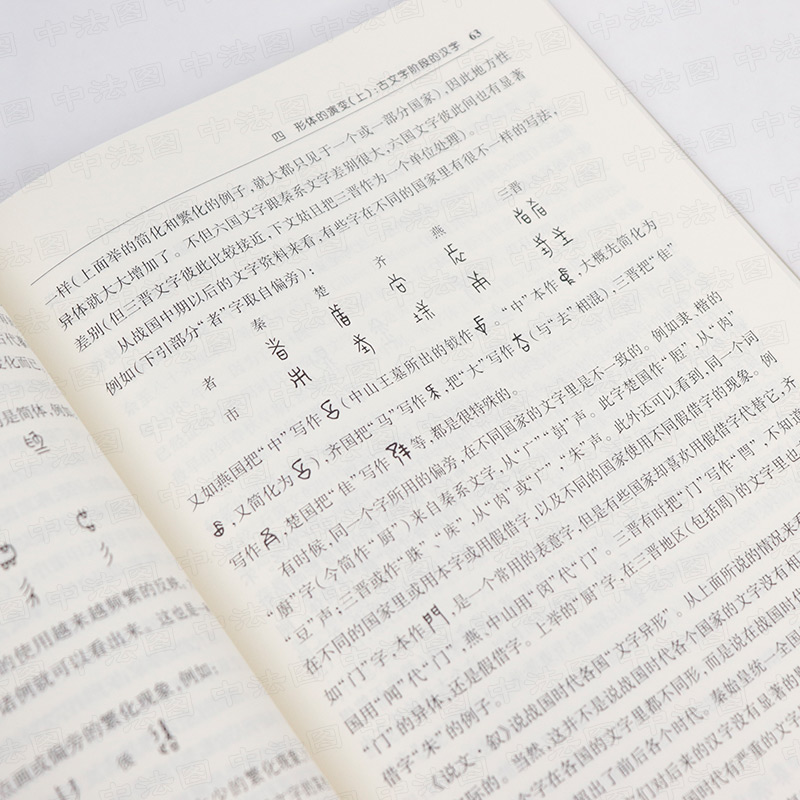 四 形体的演变(上):古文字阶段的汉字 63
一样(上面举的简化和繁化的例子,就大都只见于一个或一部分国家),因此地方性
异体就大大增加了。不但六国文字跟秦系文字差别很大,六国文字彼此间也有显著
差别(但三晋文字彼此比较接近,下文姑且把三晋作为一个单位处理)。
从战国中期以后的文字资料来看,有些字在不同的国家里有很不一样的写法,
例如(下引部分“者”字取自偏旁):
秦 楚 齐 燕 三晋
者
市
又如燕国把“中”写作(中山王墓所出的钺作。“中”本作,大概先简化为
,又简化为),齐国把“马”写作,把“大”写作(与“去”相混),三晋把“隹”
写作,楚国把“隹”写作等,都是很特殊的。
有时候,同一个字所用的偏旁,在不同国家的文字里是不一致的。例如隶楷的
字(今简作“厨”)来自秦系文字,从“广”“尌”声。此字楚国作“脰”,从“肉”
“豆”声;三晋或作,从“肉”或“广”,“朱”声。此外还可以看到,同一个词
在不同的国家里或用本字或用假借字,以及不同的国家使用不同假借字的现象。例
如“门”字,本作門,是一个常用的表意字,但是有些国家却喜欢用假借字代替它,齐
国用代“门”,燕、中山用“闵”代“门”。三晋有时把“门”写作,不知道
“门”的异体,还是假借字。上举的“厨”字,在三晋地区(包括周)的文字里也
借字“朱”的例子。
《说文·叙》说战国时代各国“文字异形”。从上面所说的情况来看
际的。当然,这并不是说战国时代各个国家的文字没有相
个字在各国的文字里都不同形,而是说在战国时代
超出了前后各个时代。秦始皇统一全国
们对后来的汉字没有显著的
国时代有严重的文字
是简体,例如
的使用越来越频繁的反映
诸例就可以看出来。这也是
或偏旁的繁化现象,例如:
中法图